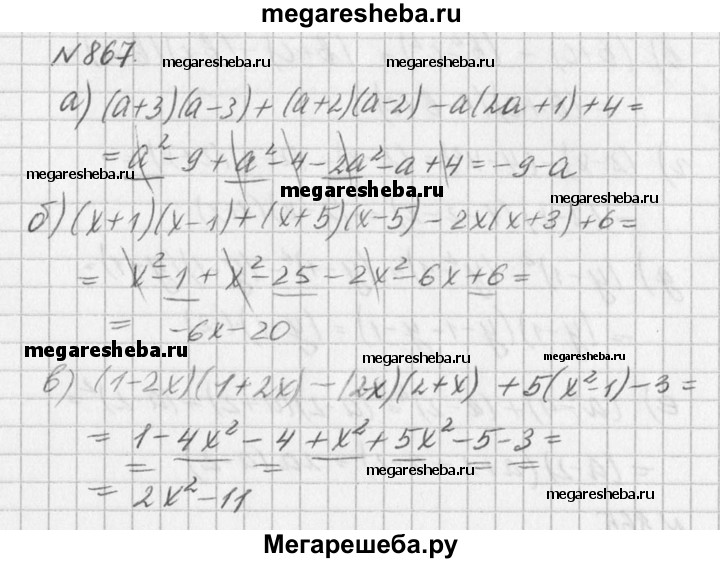 megaresheba.ru
N 867.
megaresheba.ru megaresheba.ru
а) (a+3)(a-3) + (a+2)(a-2) - a(2a+1) + 4 =
= a² - 9 + a² - 4 - 2a² - a + 4 = -9 - a
megaresheba.ru megaresheba.ru megaresheba.ru
б) (x+1)(x-1) + (x+5)(x-5) - 2x(x+3) + 6 =
= x² - 1 + x² - 25 - 2x² - 6x + 6 =
= -6x - 20
megaresheba.ru megaresheba.ru megaresheba.ru
в) (1-2x)(1+2x) - (2x)(2+x) + 5(x²-1) - 3 =
= 1 - 4x² - 4 + x² + 5x² - 5 - 3 =
megaresheba.ru
= 2x² - 11
megaresheba.ru
Мегарешеба.ру